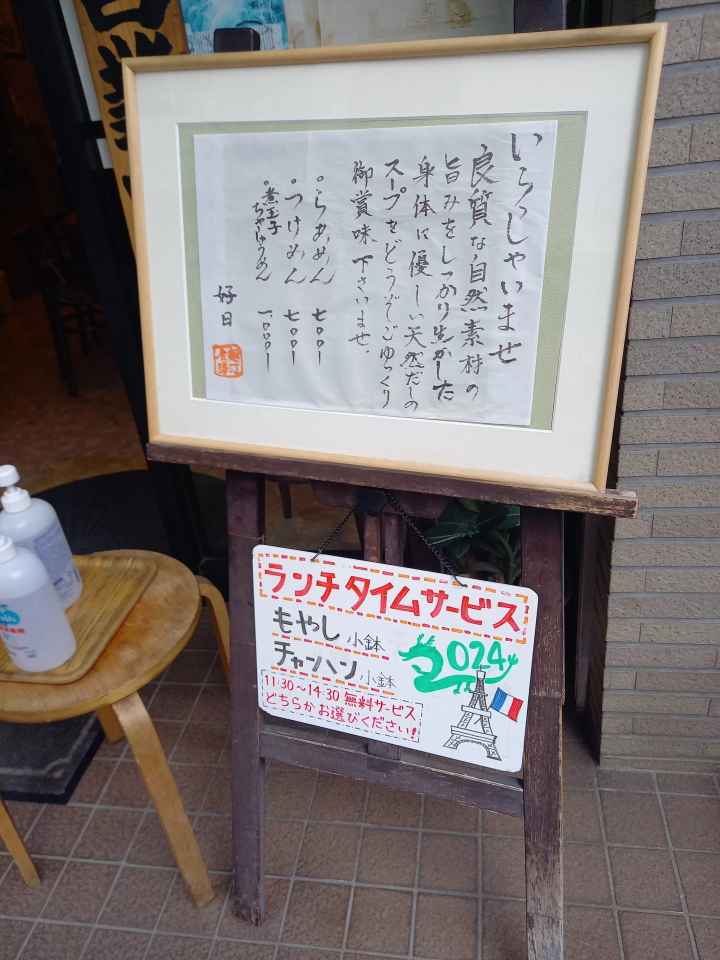 いらっしゃいませ
良質な自然素材の
旨みをしっかり生かした
身体に優しい天然だしの
スープをどうぞごゆっくり
御賞味、下さいませ。
。らあめん 七〇〇ー
。つけめん 七〇〇ー
。煮玉子ちゃーしゅうめん 一、〇〇〇ー
好日
ランチタイムサービス
もやし 小鉢
チャーハン 小鉢
2024
11:30〜14:30 無料サービス
どちらかお選びください!